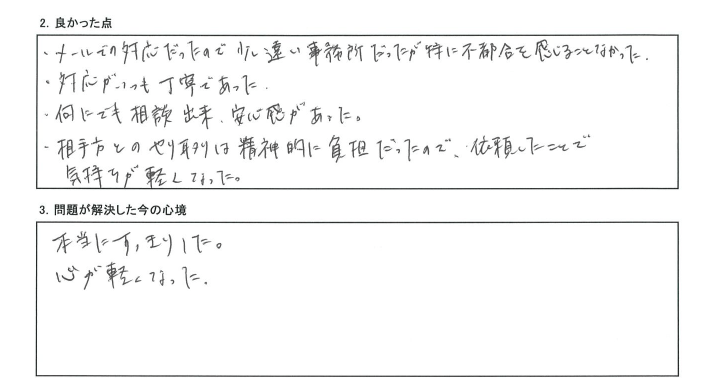 2. 良かった点
・メールでの対応だったので少し遠い事務所だったが特に不都合を感じることなかった.
・対応がいつも丁寧であった.
・何にでも相談出来、安心感があった。
・相手方とのやり取りは精神的に負担だったので、依頼したことで
気持ちが軽くなった。
3. 問題が解決した今の心境
本当にすっきりした。
心が軽くなった.